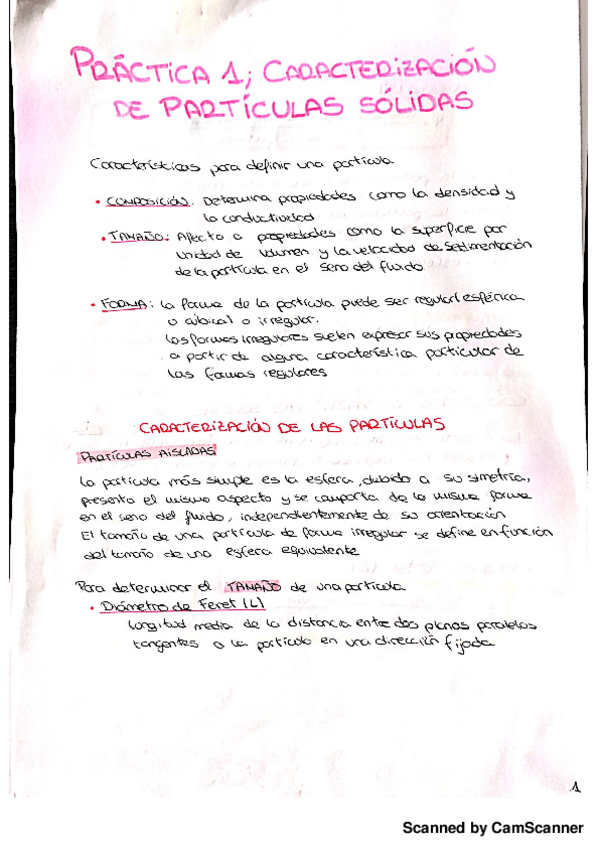 PRÁCTICA 1; CARACTERIZACIÓN
DE PARTÍCULAS SÓLIDAS
Características para definir una partícula
• COMPOSICIÓN: Determina propiedades como la densidad y
la conductividad
• TAMAÑO: Afecta a propiedades como la superficie por
unidad de volumen y la velocidad de sedimentación
de la partícula en el seno del fluido
• FORMA: la forma de la partícula puede ser regular (esférica
o cúbica) o irregular.
Las formas irregulares suelen expresar sus propiedades
a partir de alguna característica particular de
las formas regulares
CARACTERIZACIÓN DE LAS PARTÍCULAS
PARTÍCULAS AISLADAS
La partícula más simple es la esfera, debido a su simetría,
presenta el mismo aspecto y se comporta de la misma forma
en el seno del fluido, independientemente de su orientación
El tamaño de una partícula de forma irregular se define en función
del tamaño de una esfera equivalente
Para determinar el TAMAÑO de una partícula
• Diámetro de Feret (L)
longitud media de la distancia entre dos planos paralelos
tangentes a la partícula en una dirección fijada
1
Scanned by CamScanner